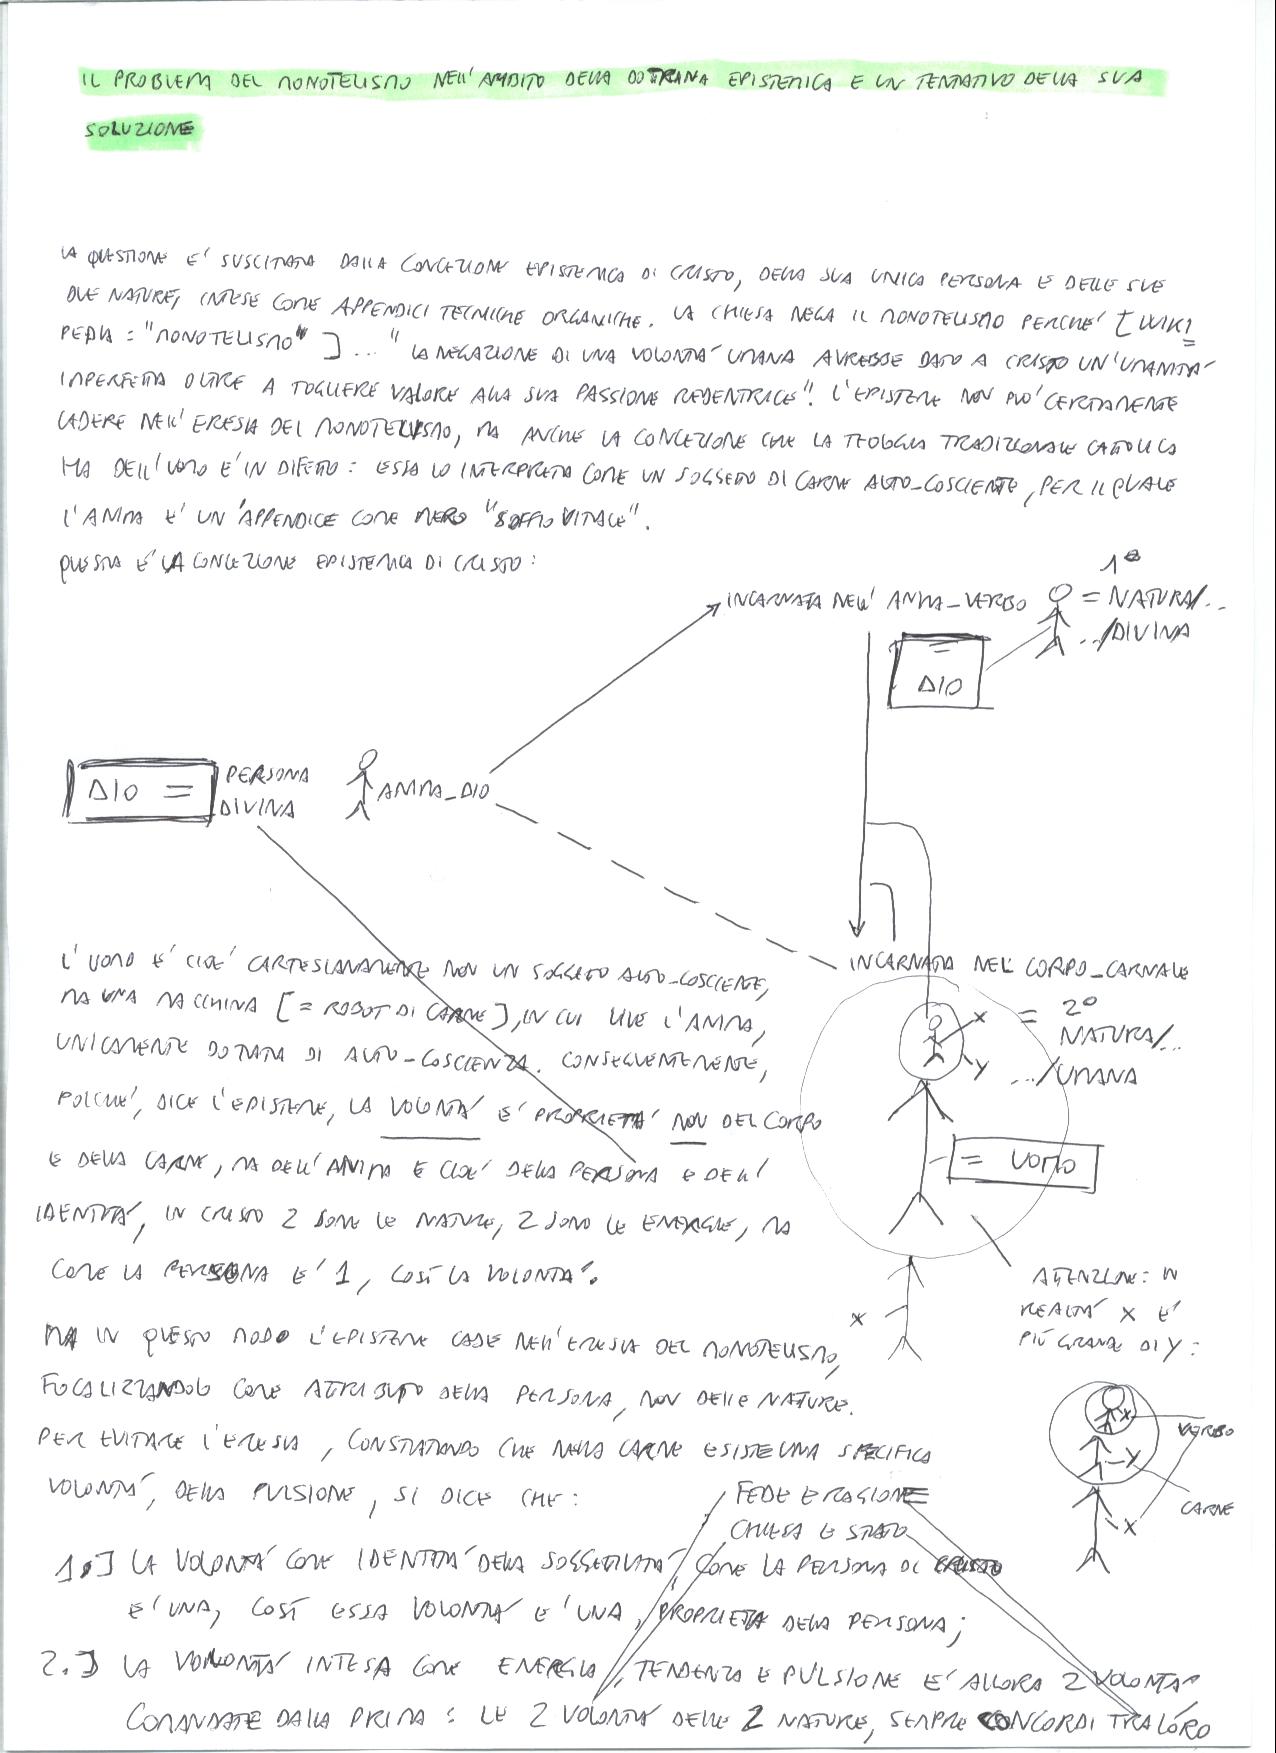 IL PROBLEMA DEL MONOTELISMO NELL'AMBITO DELLA DOTTRINA EPISTEMICA E UN TENTATIVO DELLA SUA
SOLUZIONE
LA QUESTIONE E' SUSCITATA DALLA CONCEZIONE EPISTEMICA DI CRISTO, DELLA SUA UNICA PERSONA E DELLE SUE
DUE NATURE, INTESE COME APPENDICI TECNICHE ORGANICHE. LA CHIESA NEGA IL MONOTELISMO PERCHE' [WIKI=
PEDIA: "MONOTELISMO"]... "LA NEGAZIONE DI UNA VOLONTA' UMANA AVREBBE DATO A CRISTO UN'UMANITA'
IMPERFETTA OLTRE A TOGLIERE VALORE ALLA SUA PASSIONE REDENTRICE". L'EPISTEME NON PUO' CERTAMENTE
CADERE NELL'ERESIA DEL MONOTELISMO, MA ANCHE LA CONCEZIONE CHE LA TEOLOGIA TRADIZIONALE CATTOLICA
HA DELL'UOMO E' IN DIFETTO: ESSA LO INTERPRETA COME UN SOGGETTO DI CARNE AUTO-COSCIENTE, PER IL QUALE
L'ANIMA E' UN'APPENDICE COME MERO "SOFFIO VITALE".
QUESTA E' LA CONCEZIONE EPISTEMICA DI CRISTO:
INCARNATA NELL'ANIMA-VERBO = 1ª NATURA/...
.../DIVINA
= DIO
DIO = PERSONA DIVINA
ANIMA-DIO
INCARNATA NEL CORPO-CARNALE
= 2º
NATURA/...
.../UMANA
X
Y
= UOMO
L'UOMO E' CIOE' CARTESIANAMENTE NON UN SOGGETTO AUTO-COSCIENTE,
MA UNA MACCHINA [= ROBOT DI CARNE], IN CUI VIVE L'ANIMA,
UNICAMENTE DOTATA DI AUTO-COSCIENZA. CONSEGUENTEMENTE,
POICHE', DICE L'EPISTEME, LA VOLONTA' E' PROPRIETA' NON DEL CORPO
E DELLA CARNE, MA DELL'ANIMA E CIOE' DELLA PERSONA E DELL'
IDENTITA', IN CRISTO 2 SONO LE NATURE, 2 SONO LE ENERGIE, MA
COME LA PERSONA E' 1, COSÌ LA VOLONTA'.
X
ATTENZIONE: IN
REALTA' X E'
PIÙ GRANDE DI Y:
MA IN QUESTO MODO L'EPISTEME CADE NELL'ERESIA DEL MONOTELISMO,
FOCALIZZANDOLO COME ATTRIBUTO DELLA PERSONA, NON DELLE NATURE.
PER EVITARE L'ERESIA, CONSTATANDO CHE NELLA CARNE ESISTE UNA SPECIFICA
VOLONTA', DELLA PULSIONE, SI DICE CHE:
X
VERBO
Y
CARNE
X
FEDE E RAGIONE
CHIESA E STATO
1.] LA VOLONTA' COME IDENTITA' DELLA SOGGETTIVITA', COME LA PERSONA DI CRISTO
E' UNA, COSÌ ESSA VOLONTA' E' UNA, PROPRIETA' DELLA PERSONA;
2.] LA VOLONTA' INTESA COME ENERGIA, TENDENZA E PULSIONE E' ALLORA 2 VOLONTA'
COMANDATE DALLA PRIMA: LE 2 VOLONTA' DELLE 2 NATURE, SEMPRE CONCORDI TRA LORO